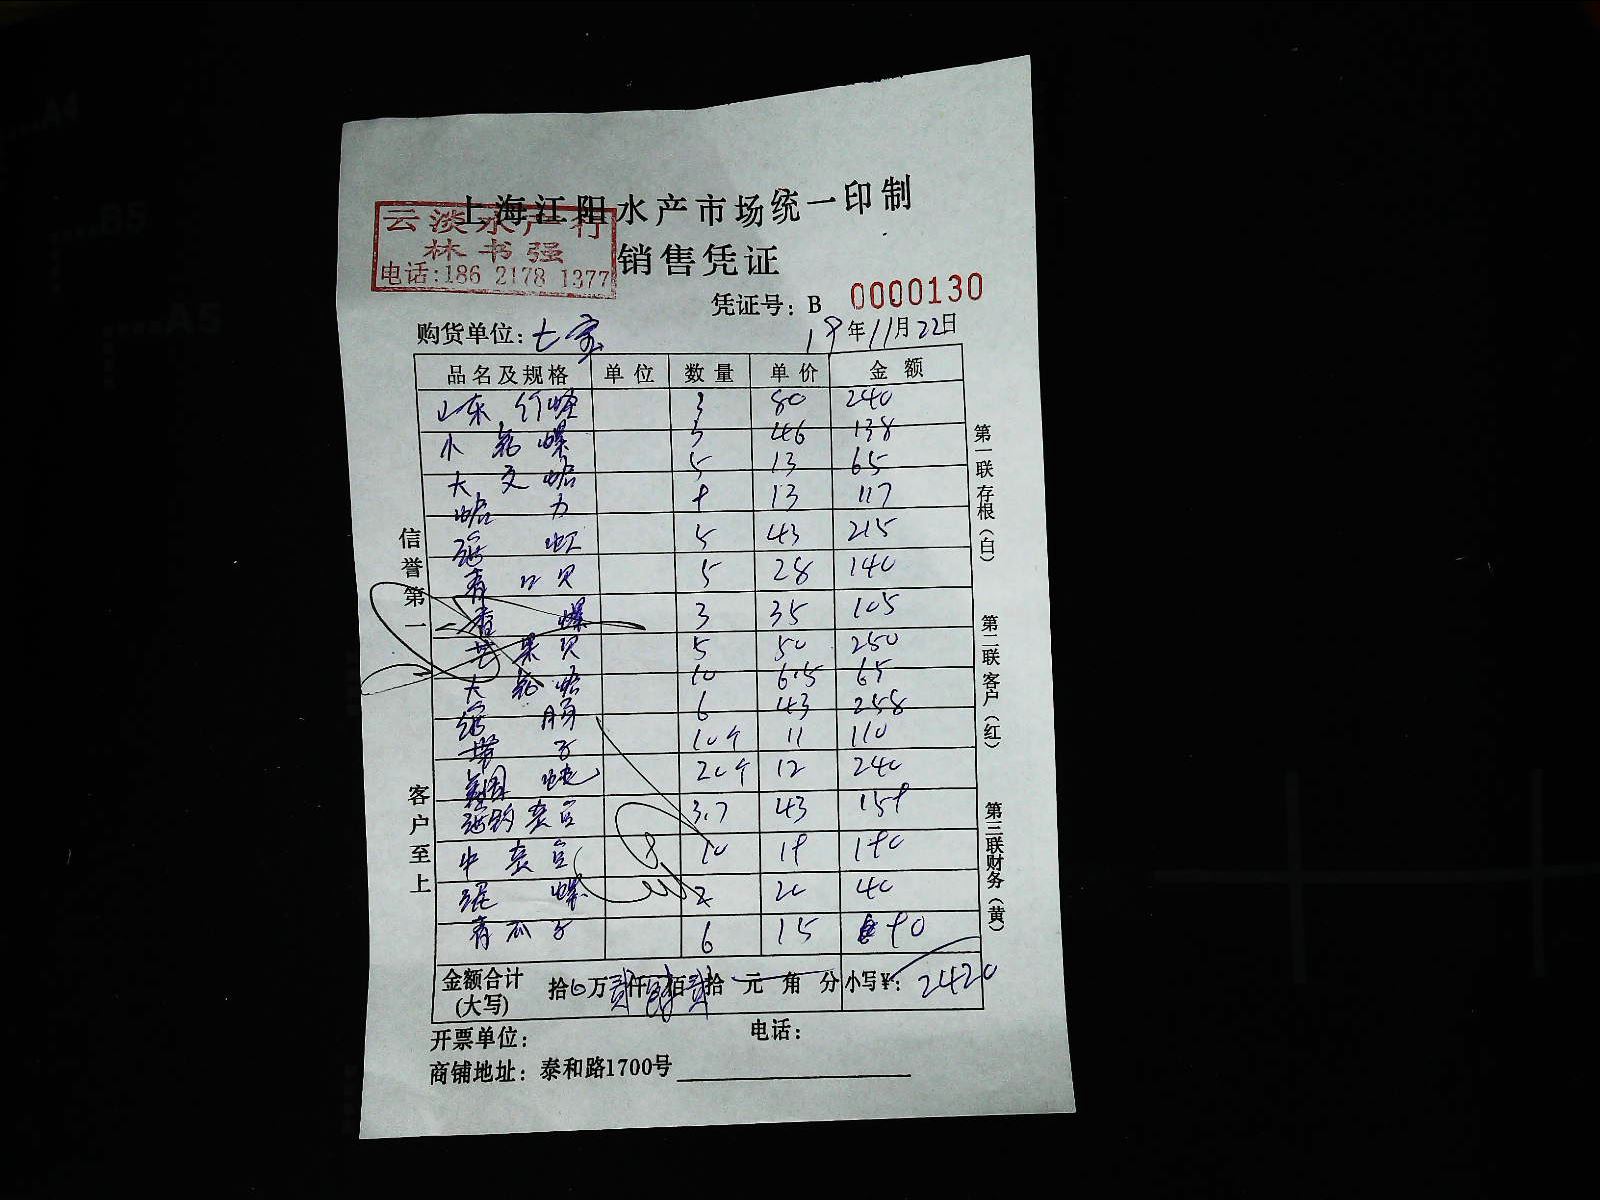 上海江阳水产市场统一印制
云淡水产行
林书强
电话:186 2178 1377
销售凭证
凭证号: B 0000130
购货单位: 七宝 19年11月22日
品名及规格 单位 数量 单价 金额
山东 竹蛏 3 80 240
小 花 螺 3 46 138
大 文 蛤 5 13 65
蛤 力 9 13 117
5 43 215
青 口 贝 5 28 140
香 螺 3 35 105
芒 果 贝 5 50 250
大 花 蛤 10 6.5 65
6 43 258
10个 11 110
20个 12 240
3.7 43 159
中 10 19 190
螺 2 20 40
青 瓜 子 6 15 90
金额合计(大写) 拾0万贰仟肆佰贰拾 元 角 分 小写¥: 2420
开票单位: 电话:
商铺地址: 泰和路1700号
信誉第一
客户至上
第一联 存根(白)
第二联 客户(红)
第三联 财务(黄)
A4
B5
A5